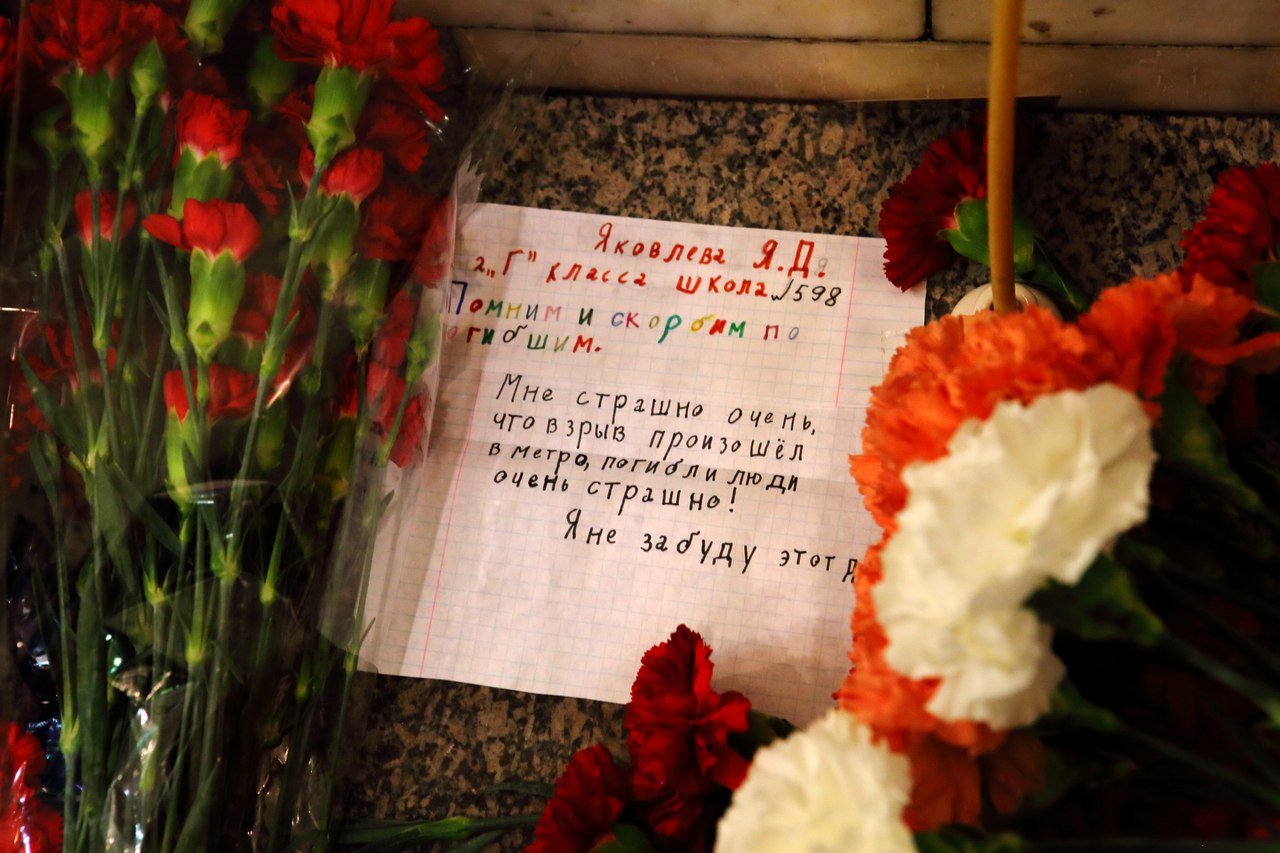 Яковлева Я.Д.
2„Г" класса школа №598
Помним и скорбим по
огибшим.
Мне страшно очень,
что взрыв произошёл
в метро, погибли люди
очень страшно!
Я не забуду этот